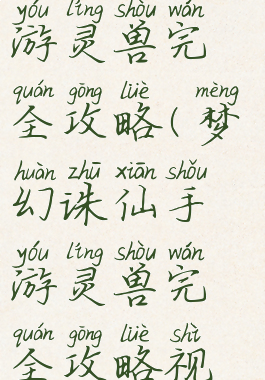 yóu líng shòu wán
游灵兽完
quán gōng lüè mèng
全攻略(梦
huàn zhū xiān shǒu
幻诛仙手
yóu líng shòu wán
游灵兽完
quán gōng lüè shì
全攻略视